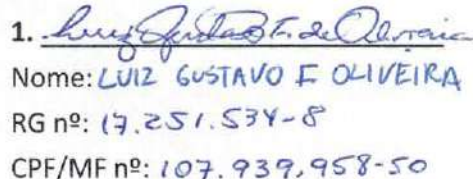 1. Luiz Gustavo F. de Oliveira
Nome: LUIZ GUSTAVO F OLIVEIRA
RG nº: 17.251.534-8
CPF/MF nº: 107.939.958-50